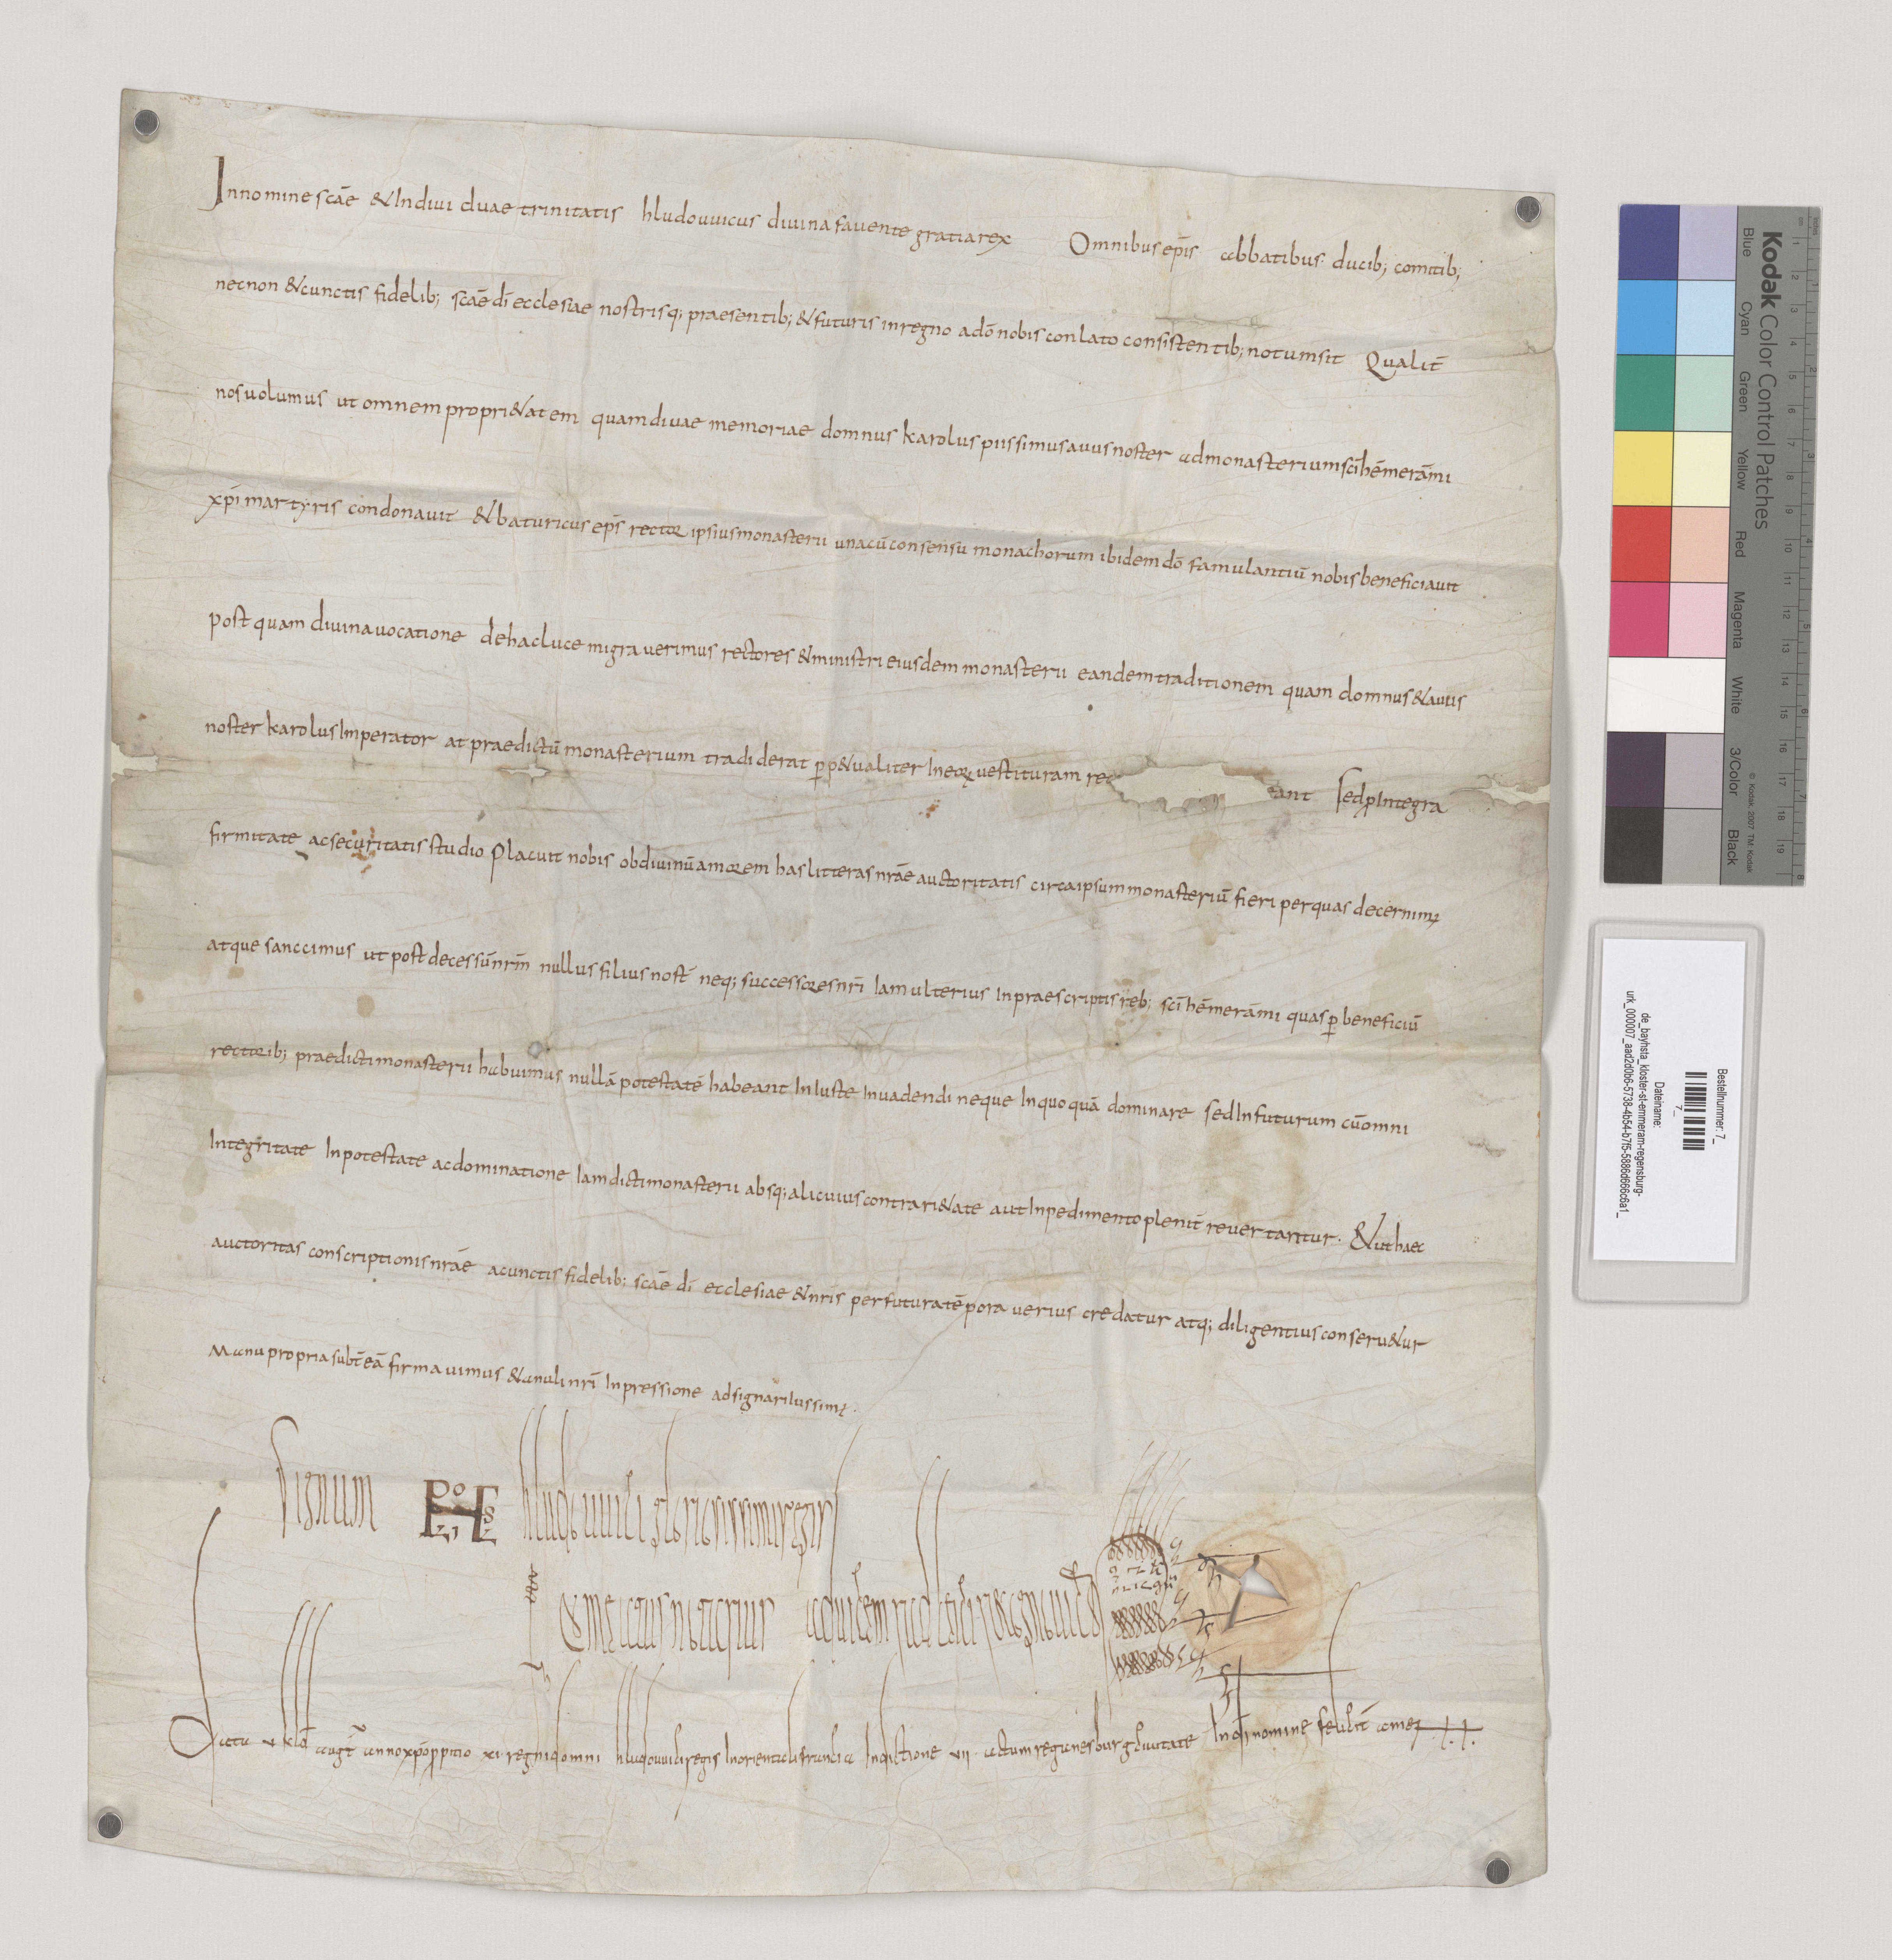 In nomine scāe & Individuae trinitatis hludouuicus divina favente gratia rex Omnibus epīs abbatibus ducib; comitib;
nec non & cunctis fidelib; scāe dī ecclesiae nostrisq; praesentib; & futuris in regno a dō nobis conlato consistentib; notum sit Qualit̄
nos volumus ut omnem propri&atem quam divae memoriae domnus karolus piissimus avus noster ad monasterium scī hēmerāmi
xpī martyris condonavit & baturicus epīs rector ipsius monasterii una cū consensu monachorum ibidem dō famulantiū nobis beneficiavit
post quam divina vocatione de hac luce migraverimus rectores & ministri eiusdem monasterii eandem traditionem quam domnus & avus
noster karolus Imperator at praedictū monasterium tradiderat ꝑp&ualiter In eoꝝ vestituram rec ant sed ꝓ Integra
firmitate ac securitatis studio placuit nobis ob divinū amorem has litteras nrāe auctoritatis circa ipsum monasteriū fieri per quas decernimꝰ
atque sanccimus ut post decessū nrm̄ nullus filius nost̄ neq; successores nrī Iam ulterius In praescriptis reb; scī hēmerāmi quas ꝑ beneficiū
rectorib; praedicti monasterii habuimus nullā potestatē habeant Iniuste Invadendi neque In quoquā dominare sed In futurum cū omni
Integritate In potestate ac dominatione Iam dicti monasterii absq; alicuius contrari&ate aut Inpedimento plenit̄ revertantur. & ut haec
auctoritas conscriptionis nrāe a cunctis fidelib; scāe dī ecclesiae & nrīs per futura tēpora verius credatur atq; diligentius conserv&ur
Manu propria subt̄ eā firmavimus & anuli nrī Inpressione adsignari Iussimꝰ.
Signum hludouuici gloriosissimi regis
Comeatus notarius ad vicem ratleici recognovi &
Data v kld̄ augt̄ anno xpō ꝓpitio xi regni domni hludouuici regis In orientali francia Indictione vii actum reganesburg civitate In dī nomine felicit̄ amen
Kodak Color Control Patches
Blue
Cyan
Green
Yellow
Red
Magenta
White
3/Color
Black
© Kodak, 2007 TM: Kodak
Bestellnummer: 7_
7_
Dateiname:
de_bayhsta_kloster-st-emmeram-regensburg-
urk_000007_aad2d0b6-5738-4b54-b7f5-5886d666c6a1_